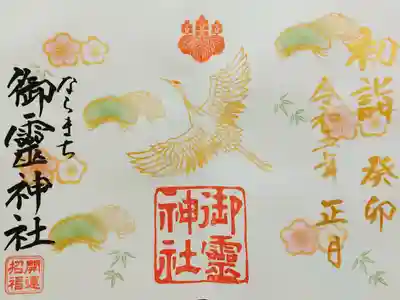 初詣 癸卯
令和五年 正月
御靈神社
ならまち
御靈神社
開運招福